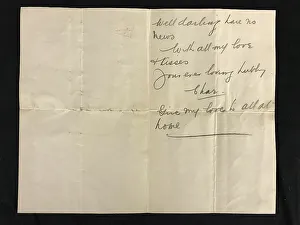 Well darling have no
news
With all my love
& kisses
Your ever loving hubby
Chas.
Give my love to all at
home